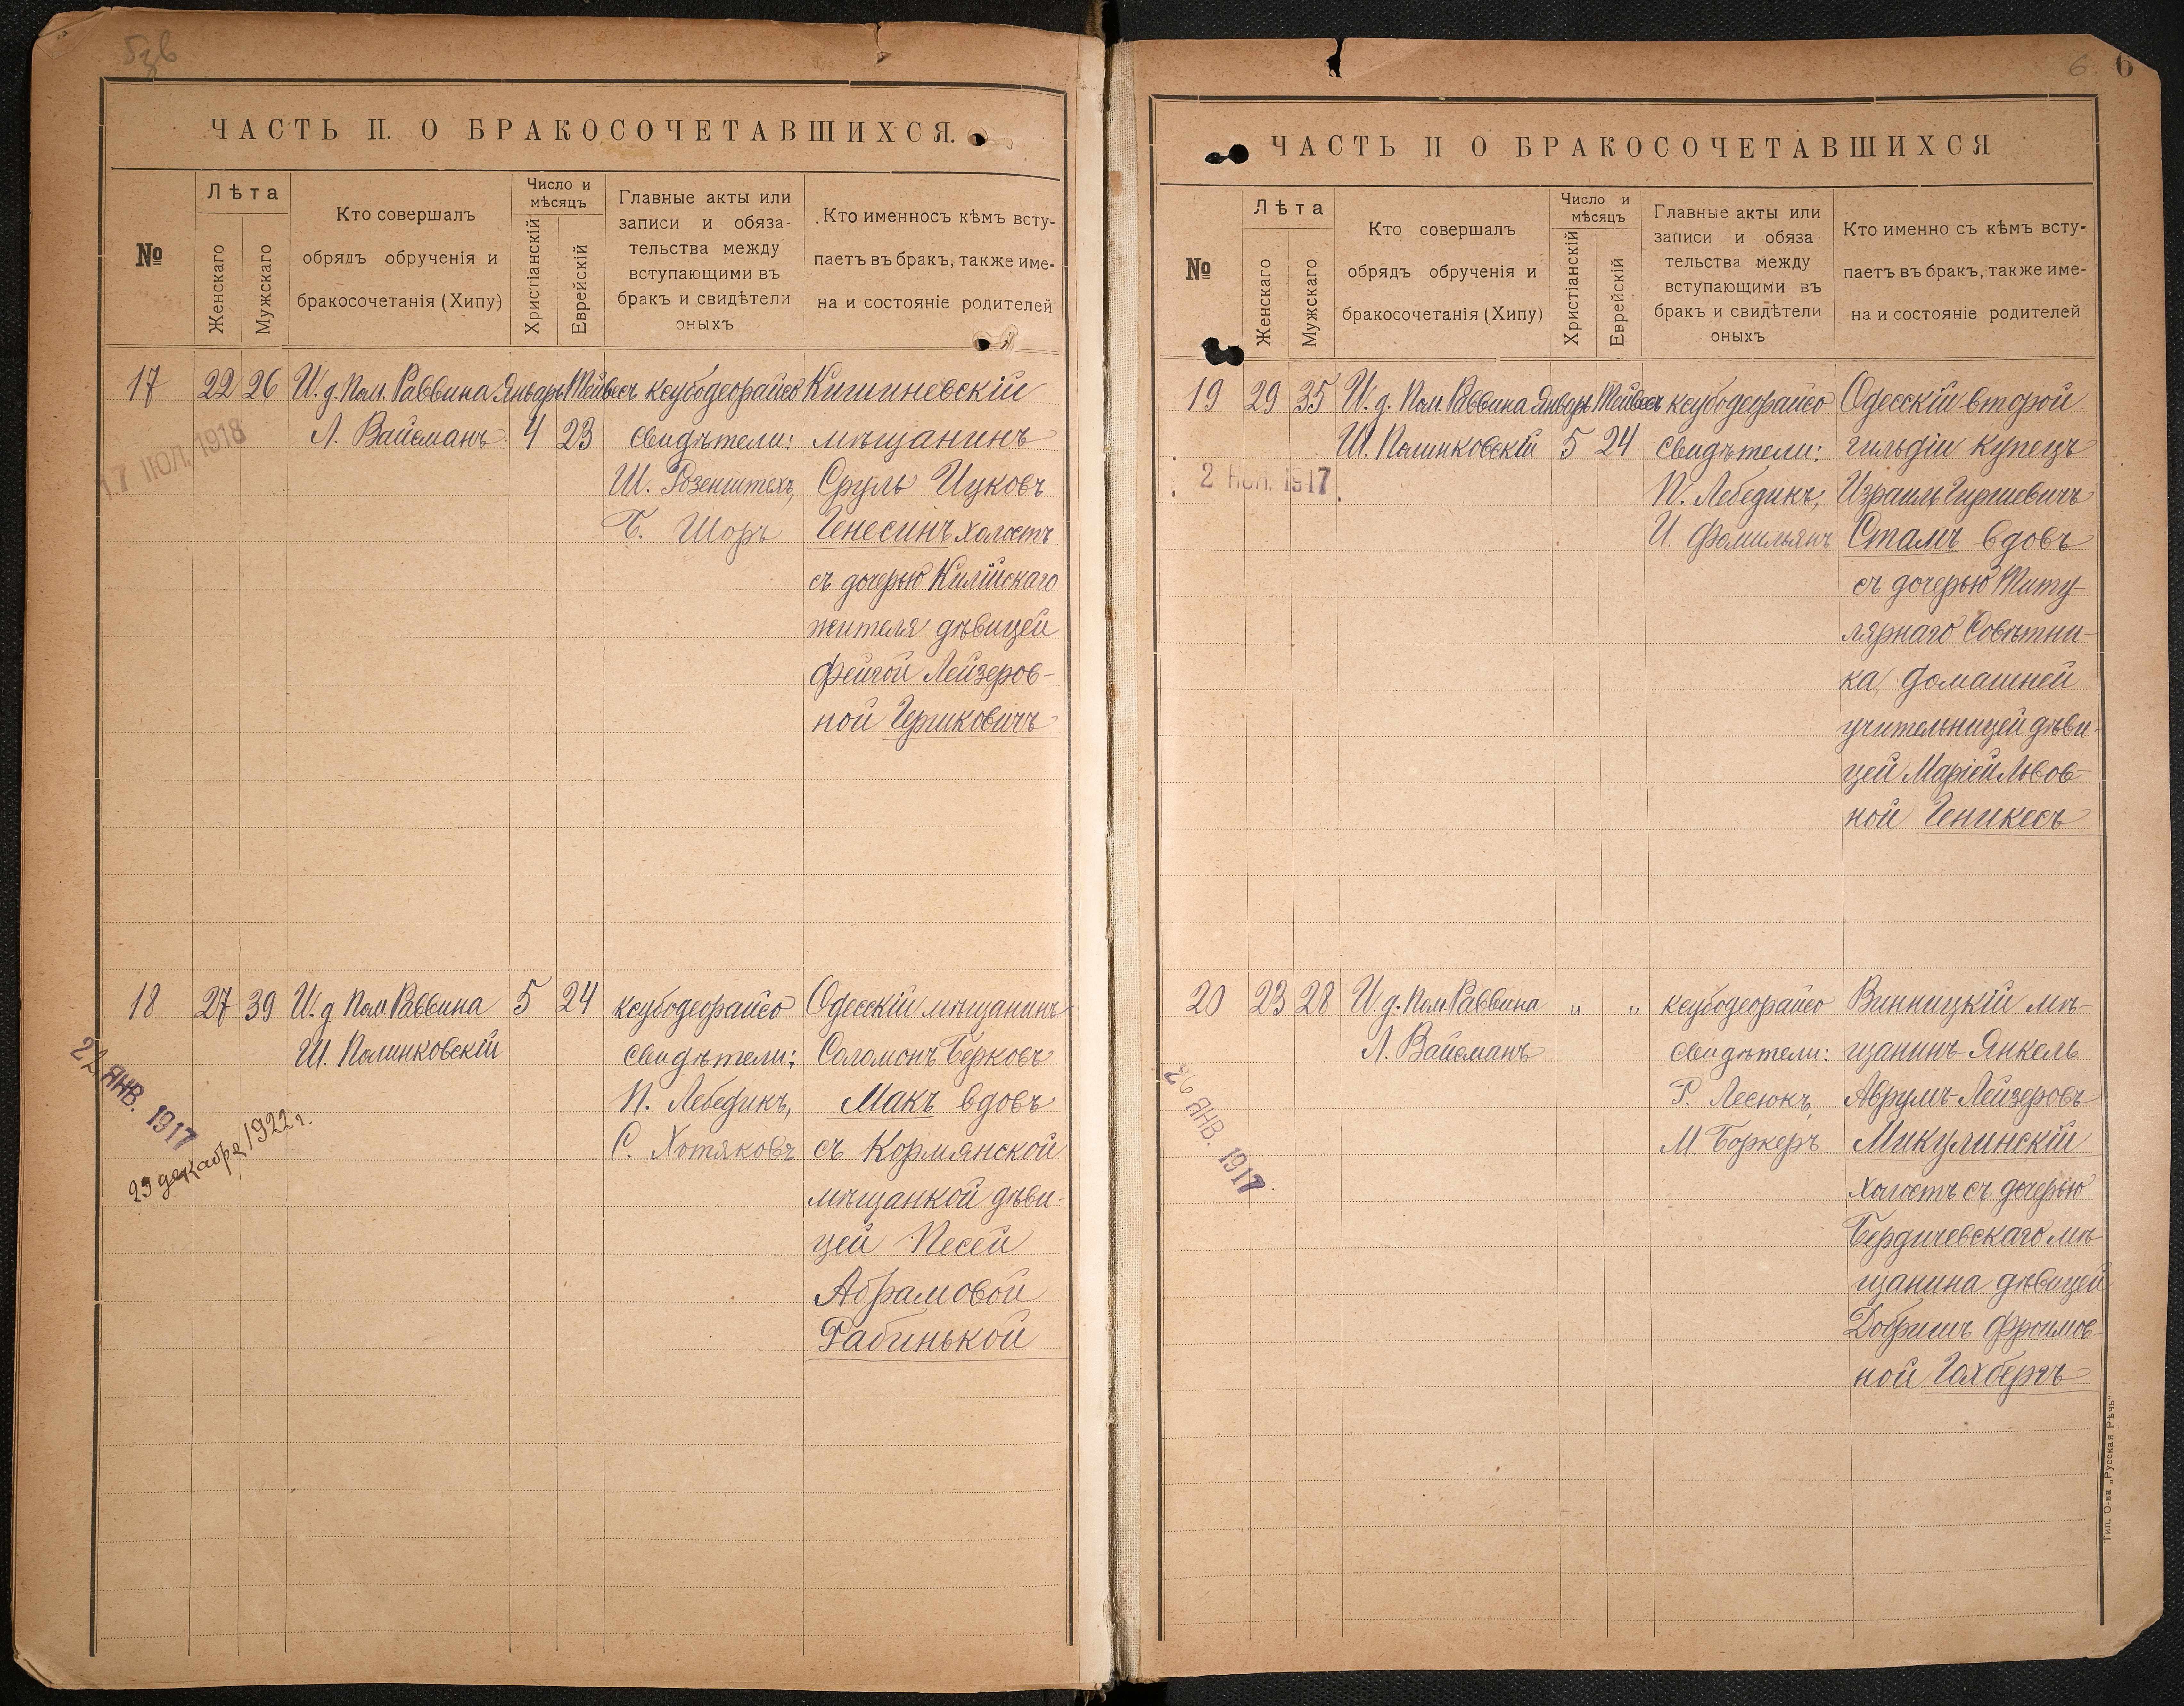 ЧАСТЬ II. О БРАКОСОЧЕТАВШИХСЯ.
№
Лѣта
Женскаго
Мужскаго
Кто совершалъ
обрядъ обрученія и
бракосочетанія (Хипу)
Число и
мѣсяцъ
Христіанскій
Еврейскій
Главные акты или
записи и обяза-
тельства между
вступающими въ
бракъ и свидѣтели
оныхъ
Кто именносъ кѣмъ всту-
паетъ въ бракъ, также име-
на и состояніе родителей
17
22
26
И. д. Пом. Раввина
Л. Вайсманъ
Январь
4
Тейвесъ
23
ксубодеорайсо
свидѣтели:
Ш. Розенштехъ,
Б. Шоръ
Кишиневскій
мѣщанинъ
Сруль Ицковъ
Генесинъ холостъ
съ дочерью Килійскаго
жителя дѣвицей
Фейгой Лейзеров-
ной Гершковичъ
17 ІЮЛ. 1918
18
27
39
И. д. Пом. Раввина
Ш. Полинковскій
5
24
ксубодеорайсо
свидѣтели:
П. Лебедикъ,
С. Хотяковъ
Одесскій мѣщанинъ
Соломонъ Берковъ
Макъ вдовъ
съ Кормянской
мѣщанкой дѣви-
цей Песей
Абрамовой
Рабинькой
ЯНВ. 1917
29 декабря 1922 г.
6
6
ЧАСТЬ II О БРАКОСОЧЕТАВШИХСЯ
№
Лѣта
Женскаго
Мужскаго
Кто совершалъ
обрядъ обрученія и
бракосочетанія (Хипу)
Число и
мѣсяцъ
Христіанскій
Еврейскій
Главные акты или
записи и обяза
тельства между
вступающими въ
бракъ и свидѣтели
оныхъ
Кто именно съ кѣмъ всту-
паетъ въ бракъ, также име-
на и состояніе родителей
19
29
35
И. д. Пом. Раввина
Ш. Полинковскій
Январь
5
Тейвесъ
24
ксубодеорайсо
свидѣтели:
П. Лебедикъ,
И. Фамильянъ
Одесскій второй
гильдіи купецъ
Израиль Гиршевичъ
Стамъ вдовъ
съ дочерью Титу-
лярнаго Совѣтни-
ка, домашней
учительницей дѣви-
цей Маріей Львов-
ной Геникесъ
2 НОЯ. 1917
20
23
28
И. д. Пом. Раввина
Л. Вайсманъ
„
„
ксубодеорайсо
свидѣтели:
Г. Лесюкъ,
М. Боркеръ
Винницкій мѣ-
щанинъ Янкель
Аврумъ-Лейзеровъ
Микулинскій
холостъ съ дочерью
Бердичевскаго мѣ-
щанина дѣвицей
Добришъ Фроимов-
ной Голбергъ
26 ЯНВ. 1917
Тип. О-ва „Русская Рѣчь"